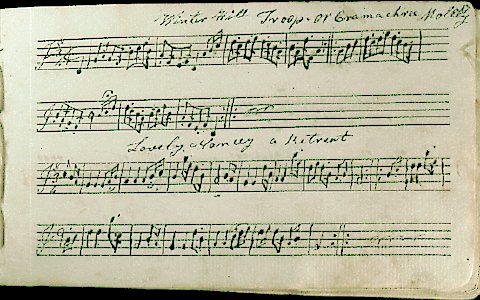 Winter Hill Troop. or Gramachree Molly
Lovely Nancy a Retreat